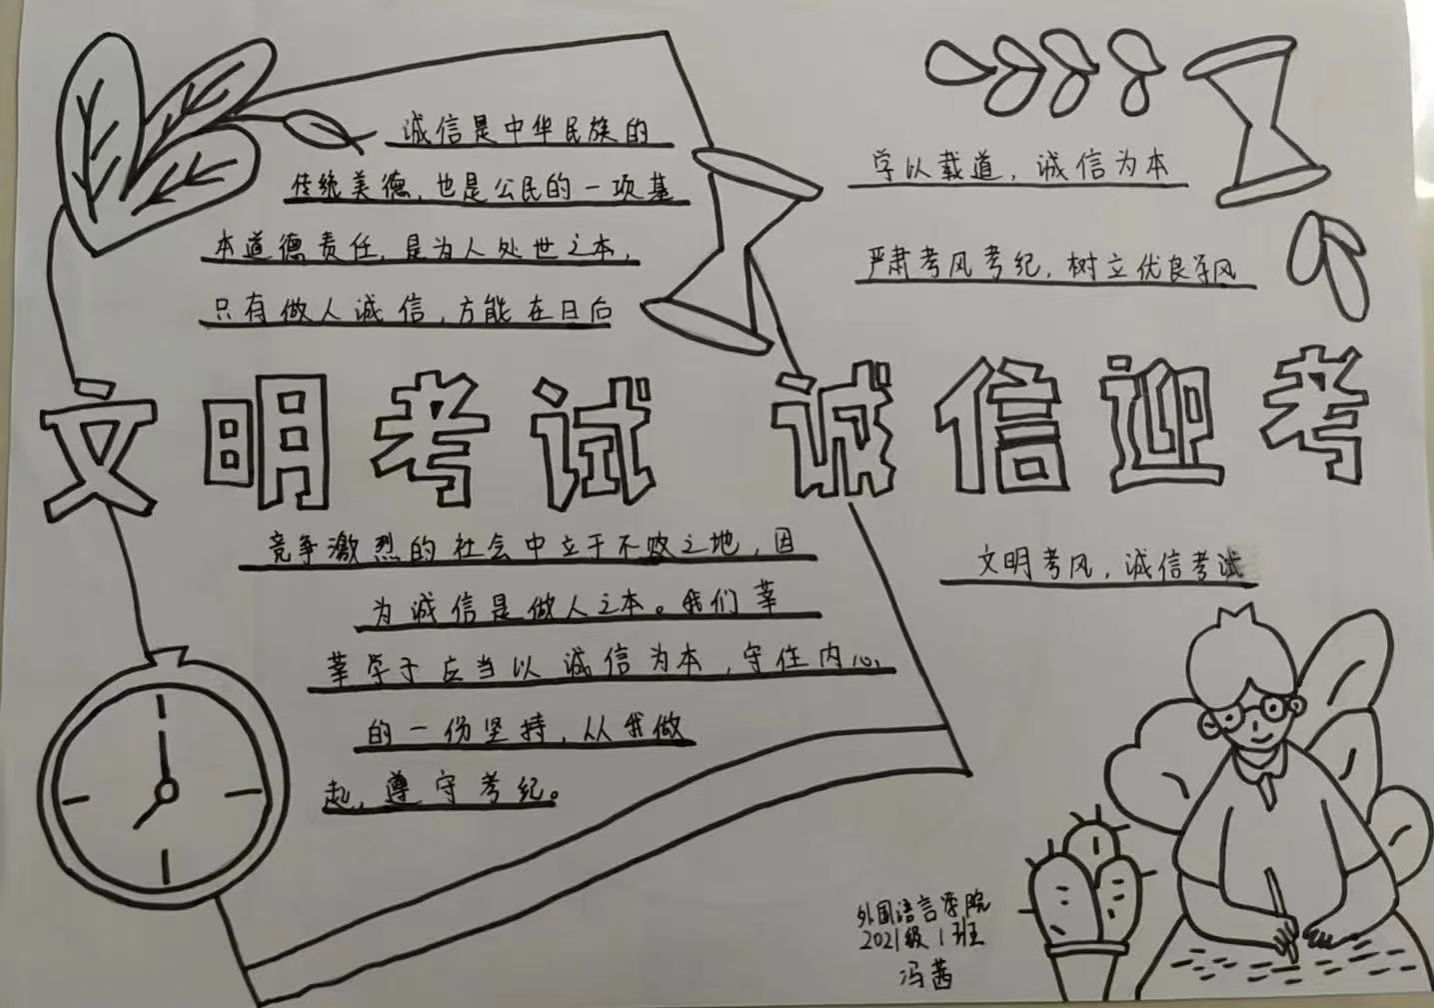 诚信是中华民族的
传统美德，也是公民的一项基
本道德责任，是为人处世之本，
只有做人诚信，方能在日后
学以载道，诚信为本
严肃考风考纪，树立优良学风
文明考试 诚信迎考
竞争激烈的社会中立于不败之地，因
为诚信是做人之本。我们莘
莘学子应当以诚信为本，守住内心
的一份坚持，从我做
起，遵守考纪。
文明考风，诚信考试
外国语言学院
2021级1班
冯茜